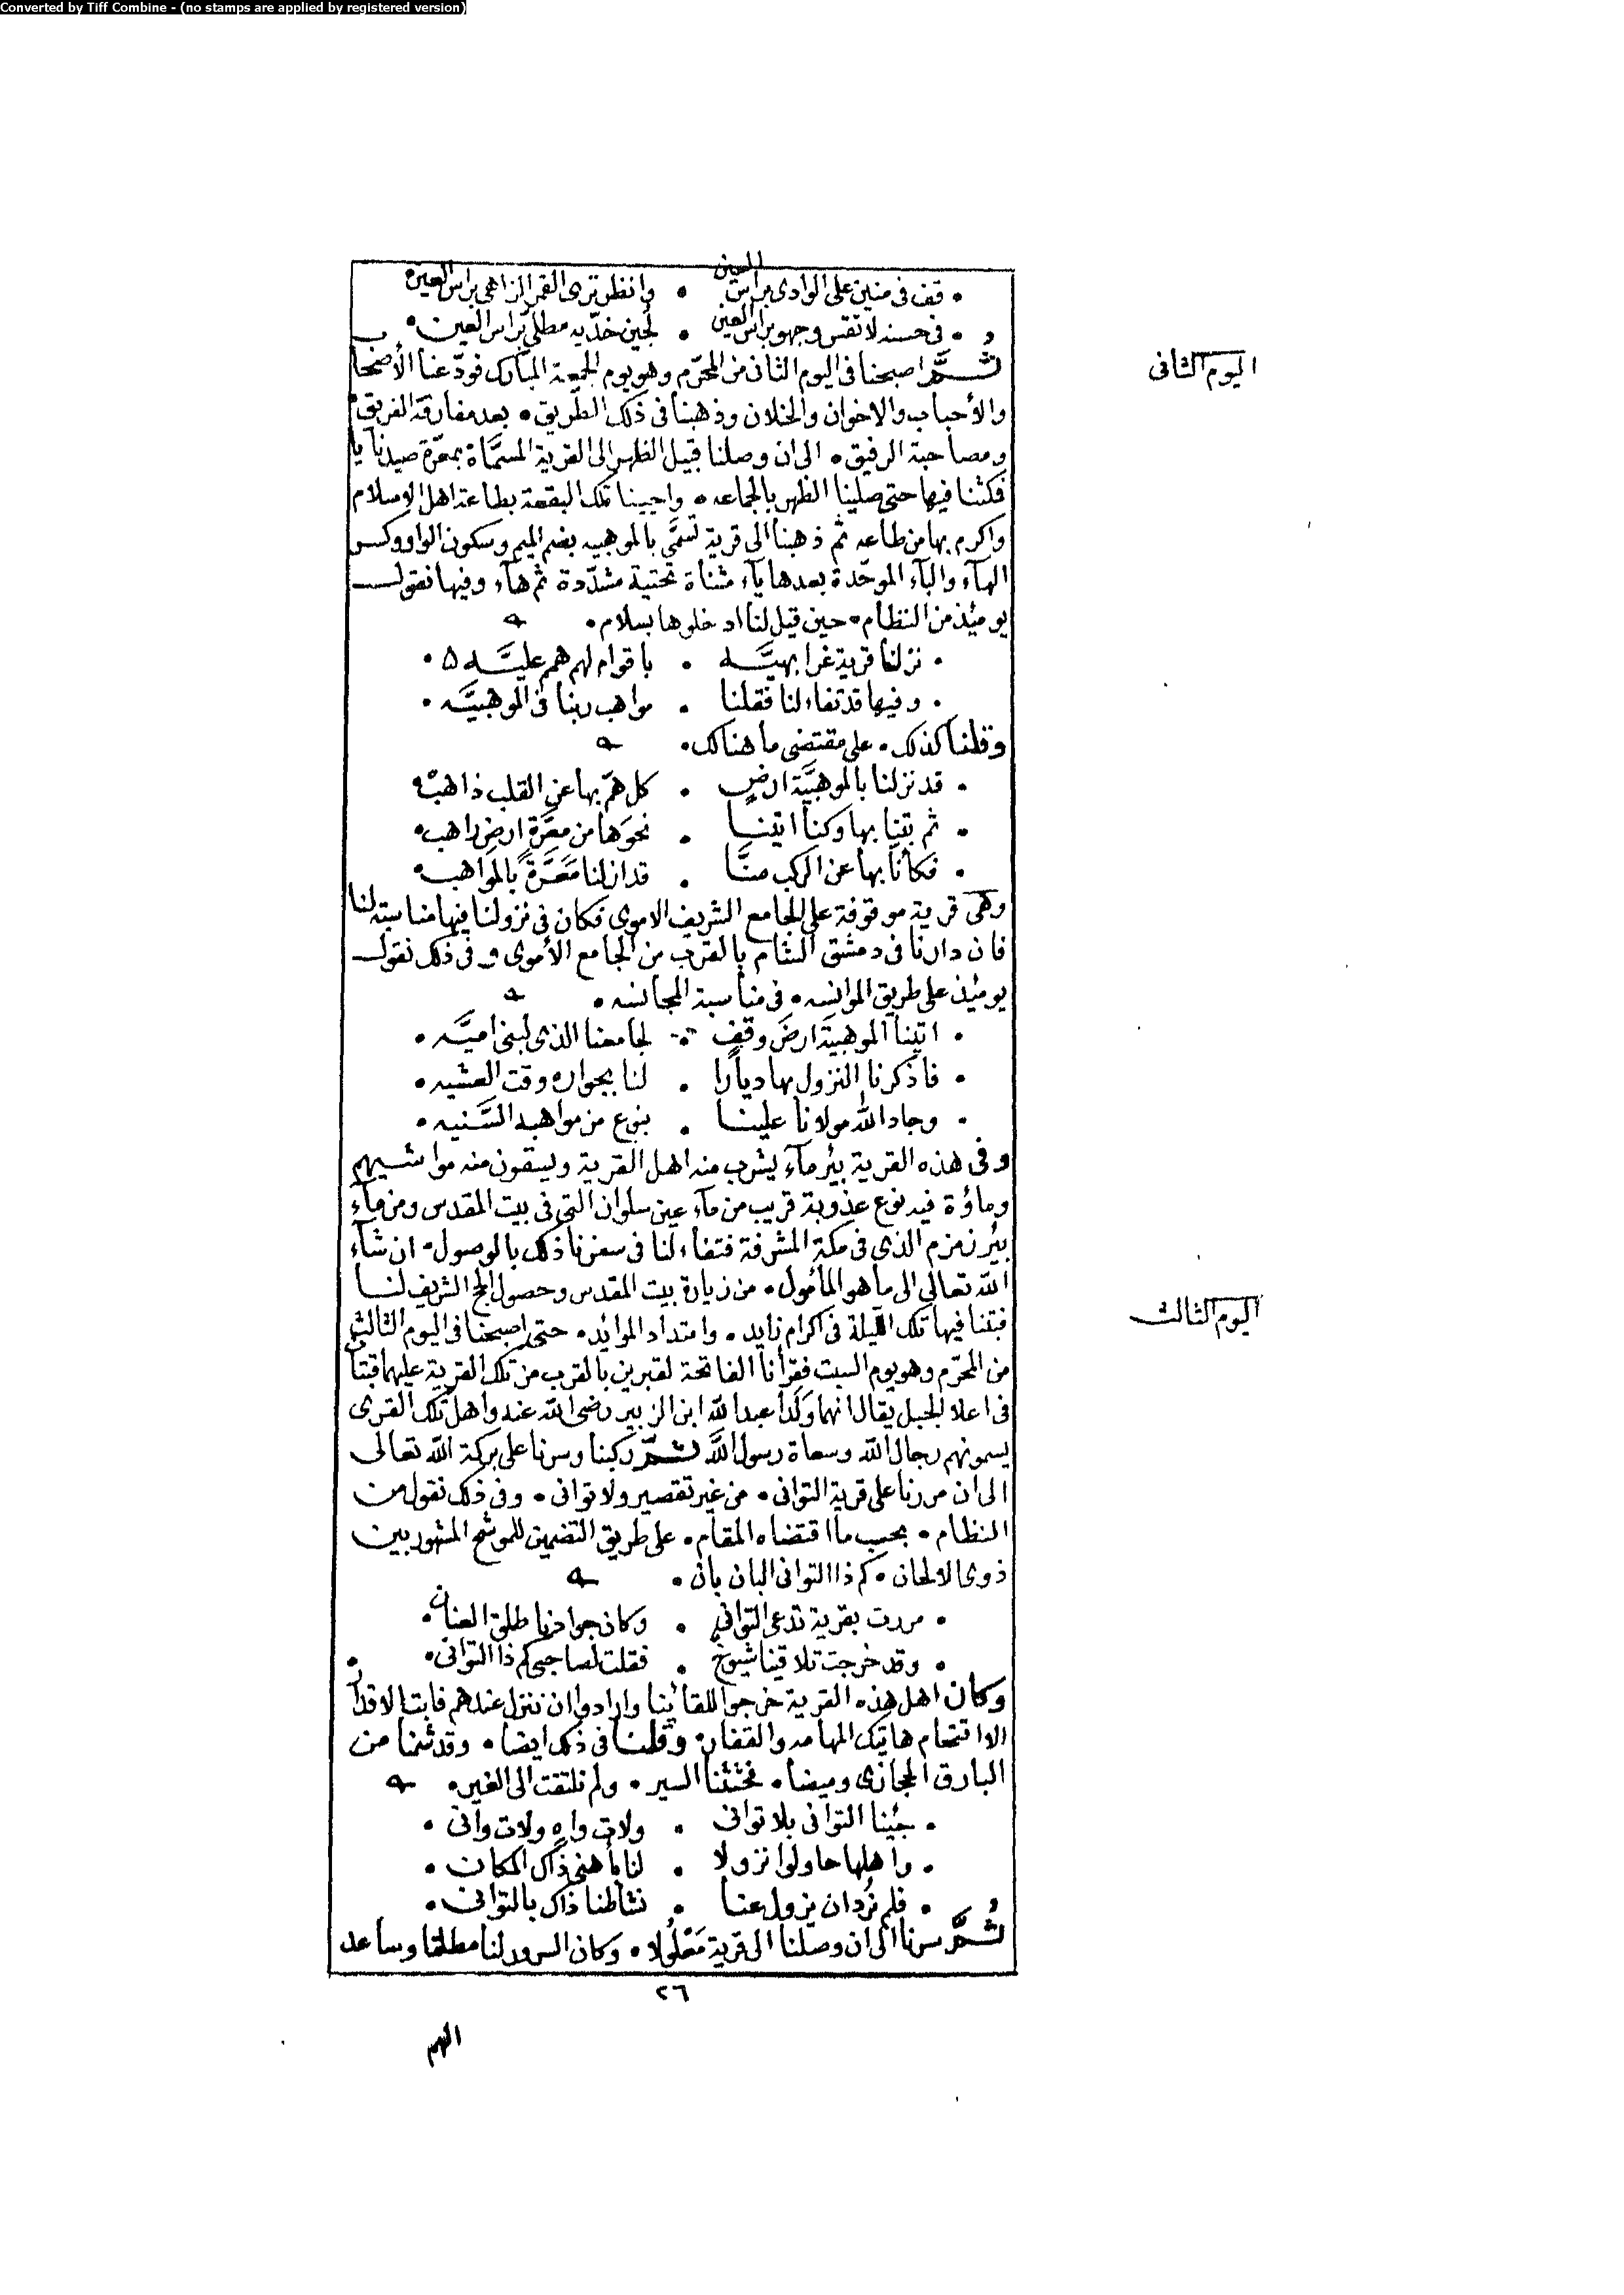 Converted by Tiff Combine - (no stamps are applied by registered version)
• قف فى منين على الوادى براس العين • وانظر ترى القمر الزاهى براس العين •
• فى حسنه لا تقس وجهو براس العين • لجين خدّيه مطلى براس العين •
اليوم الثانى
ثُمَّ اصبحنا فى اليوم الثانى من المحرّم وهو يوم الجمعة المبارك فودّعنا الأصحاب
والأحباب والاخوان والخلان وذهبنا فى ذلك الطريق • بعد مفارقة الفريق •
ومصاحبة الرفيق • الى ان وصلنا قبيل الظهر الى القرية المسمّاة بمعرّة صيدنايا
فمكثنا فيها حتى صلينا الظهر بالجماعه • واحيينا تلك البقعة بطاعة اهل الاسلام
واكرم بها من طاعه ثم ذهبنا الى قرية تسمَّى بالموهبيه بضم الميم وسكون الواو وكسر
الهآء والبآء الموحّدة بعدها يآء مثناة تحتية مشدّدة ثم هآء وفيها نقول
يومئذ من النظام • حين قيل لنا ادخلوها بسلام •
• نزلنا قرية غرا بهيَّه • باقوام لهم همم عليَّه •
• وفيها قد تفاءلنا فقلنا • مواهب ربنا فى الموهبيَّه •
وقلنا كذلك • على مقتضى ما هنالك •
• قد نزلنا بالموهبيَّة ارضٍ • كل همّ بها عن القلب ذاهبْ •
• ثم بتنا بها وكنا اتينا • نحوَها من معرَّة ارض راهب •
• فكأنا بها عن الركب منَّا • قد ازلنا مَعَرَّةً بالمواهب •
وهى قرية موقوفة على الجامع الشريف الاموى فكان فى نزولنا فيها مناسبة لنا
فان دارنا فى دمشق الشام بالقرب من الجامع الأموى وفى ذلك نقول
يومئذ على طريق الموانسه • فى مناسبة المجانسه •
• اتينا الموهبيةَ ارضَ وقفٍ • لجامعنا الذى لبنى اميَّه •
• فاذكرنا النزول بها ديارًا • لنا بجواره وقت العشيه •
• وجاد الله مولانا علينا • بنوع من مواهبه السَّنيه •
وفى هذه القرية بير مآء يشرب منه اهل القرية ويسقون منه مواشيهم
وماؤة فيه نوع عذوبة قريب من مآء عين سلوان التى فى بيت المقدس ومن مآء
بير زمزم الذى فى مكة المشرفة فتفاءلنا فى سفرنا ذلك بالوصول • ان شآء
الله تعالى الى ما هو المأمول • من زيارة بيت المقدس وحصول الحج الشريف لنا
اليوم الثالث
فبتنا فيها تلك الليلة فى اكرام زايد • وامتداد الموايد • حتى اصبحنا فى اليوم الثالث
من المحرّم وهو يوم السبت فقرأنا الفاتحة لقبرين بالقرب من تلك القرية عليهما قبتان
فى اعلا الجبل يقال انهما وَلَدا عبد الله ابن الزبير رضى الله عنه واهل تلك القرى
يسمونهم رجال الله وسعاة رسول الله ثمَّ ركبنا وسرنا على بركة الله تعالى
الى ان مررنا على قرية التوانى • من غير تقصير ولا توانى • وفى ذلك نقول من
النظام • بحسب ما اقتضاه المقام • على طريق التضمين للموشح المشهور بين
ذوى الالحان • كم ذا التوانى البان بان •
• مررت بقرية تدعى التوانى • وكان جوادنا طلق العنان •
• وقد خرجت تلاقينا شيوخٌ • فقلت لصاحبى كم ذا التوانى •
وكان اهل هذه القرية خرجوا للقائنا وارادوا ان ننزل عندهم فابت الاقدار
الا اقتحام هاتيك المهامه والقفار • وقلنا فى ذلك ايضا • وقد شمنا من
البارق الحجازى وميضا • فحثثنا السير • ولم نلتفت الى الغير •
• جئنا التوانى بلا توانى • ولات واهٍ ولات وانى •
• واهلها حاولوا نزولا • لنا باهنى ذاك المكان •
• فلم نُرد ان يزول عنا • نشاطنا ذاك بالتوانى •
ثُمَّ سرنا الى ان وصلنا الى قرية مَعْلُولا • وكان السرور لنا مطلقا وساعد
٢٦
الهم